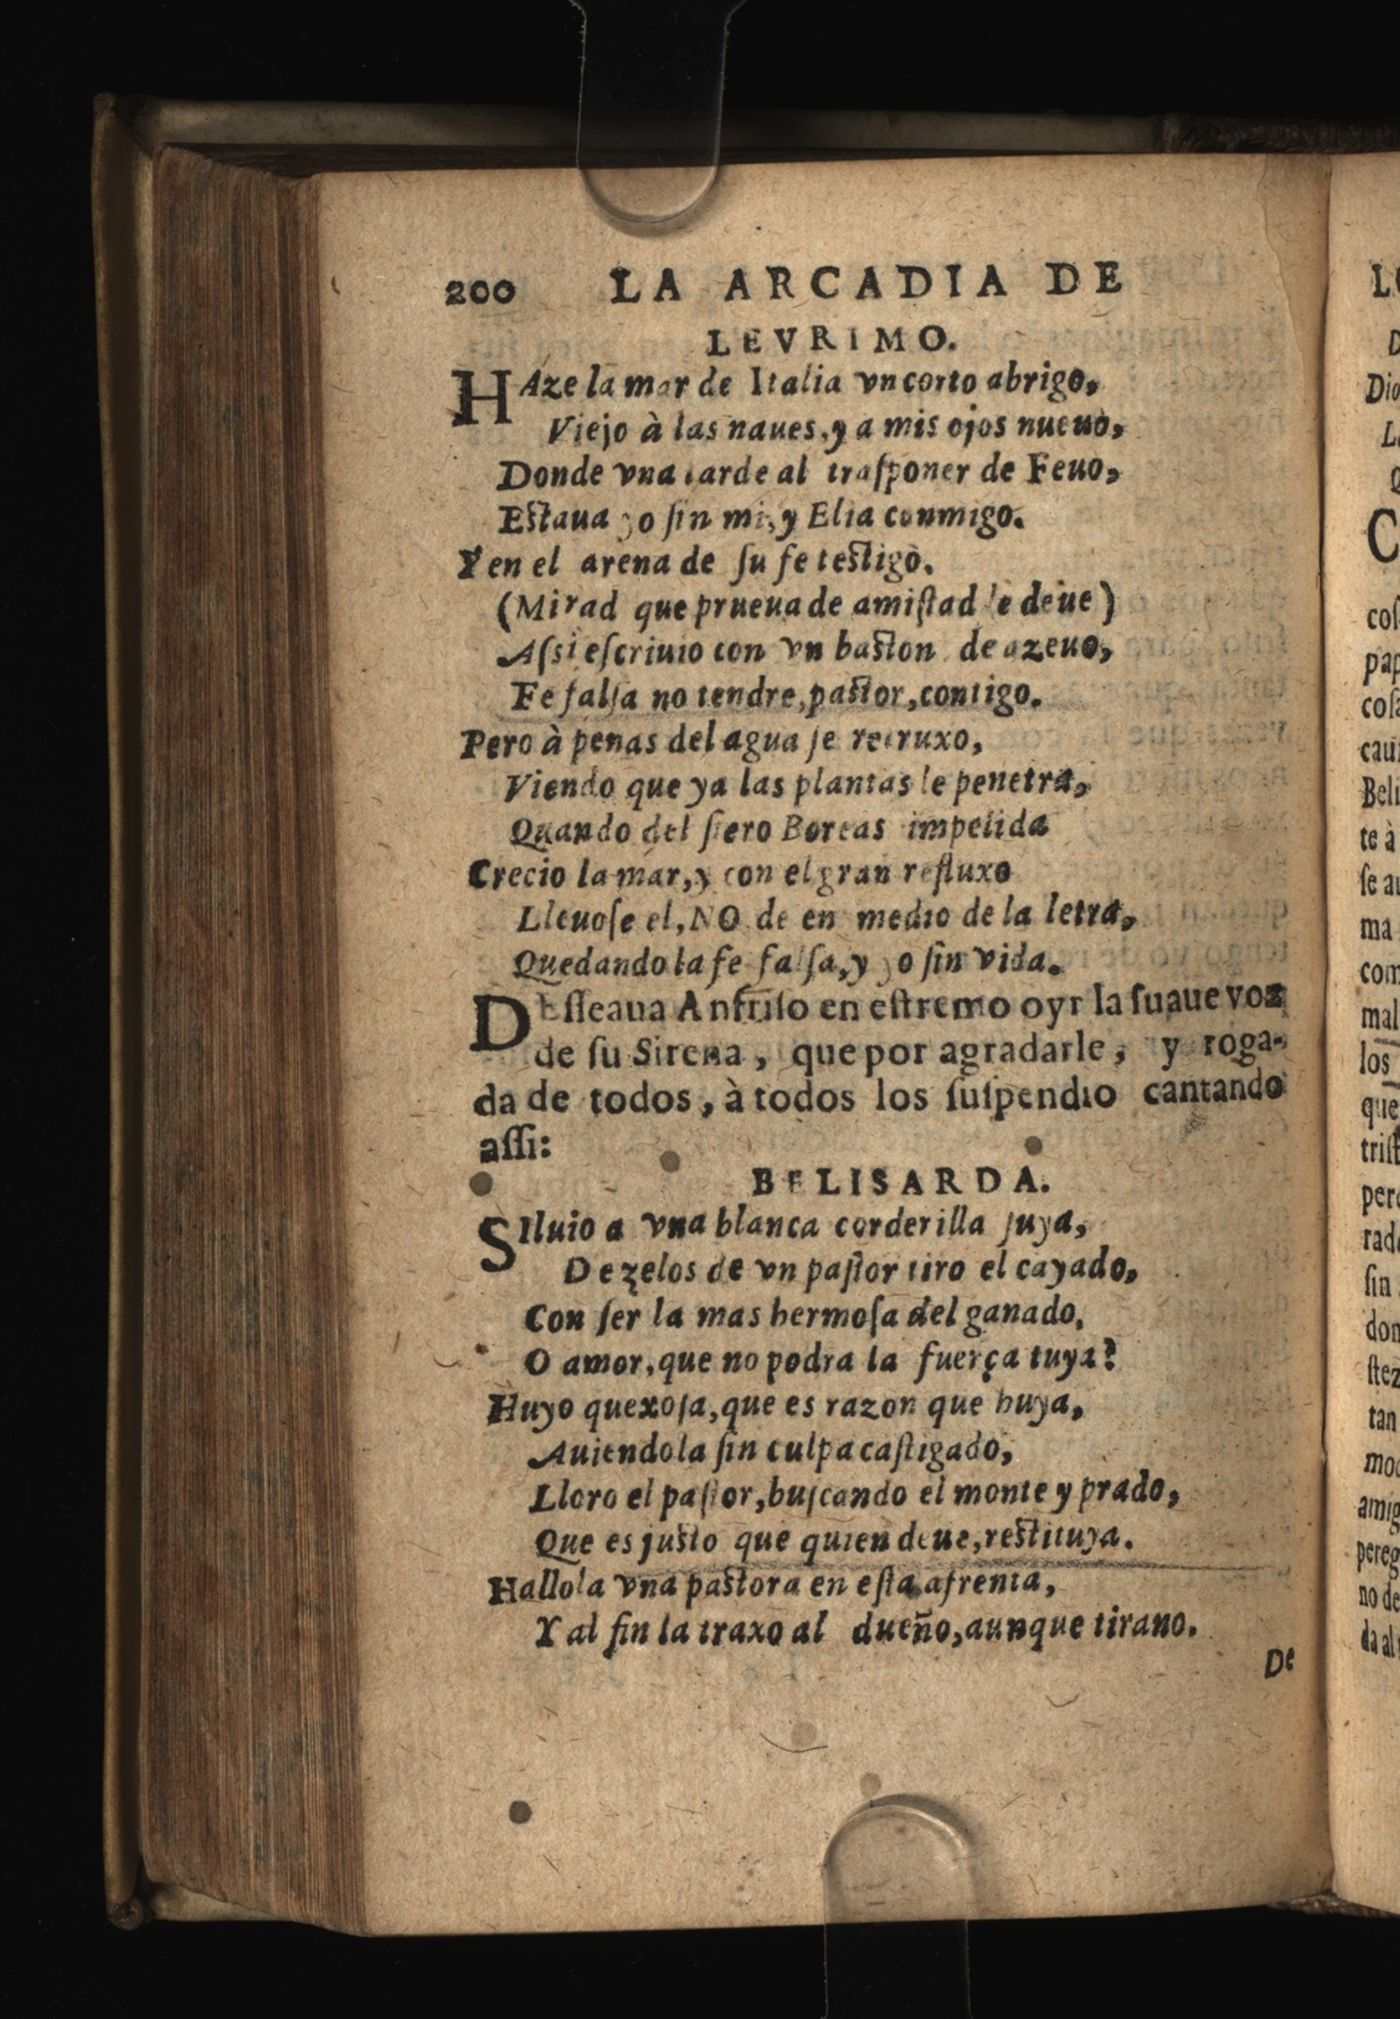 200 LA ARCADIA DE
LEVRIMO.
HAze la mar de Italia vn corto abrigo,
Viejo à las naues, y a mis ojos nueuo,
Donde vna tarde al traſponer de Feuo,
Eſtaua yo ſin mi, y Elia conmigo.
Y en el arena de ſu fe teſtigo.
(Mirad que prueua de amiſtad le deue)
Aſsi eſcriuio con vn baſton de azeuo,
Fe falſa no tendre, paſtor, contigo.
Pero à penas del agua ſe retruxo,
Viendo que ya las plantas le penetra,
Quando del fiero Boreas impelida
Crecio la mar, y con el gran refluxo
Lleuoſe el, NO de en medio de la letra,
Quedando la fe falſa, y yo ſin vida.
DEſſeaua Anfriſo en eſtremo oyr la ſuaue voz
de ſu Sirena, que por agradarle, y roga-
da de todos, à todos los ſuſpendio cantando
aſſi:
BELISARDA.
SIluio a vna blanca corderilla ſuya,
De zelos de vn paſtor tiro el cayado,
Con ſer la mas hermoſa del ganado,
O amor, que no podra la fuerça tuya?
Huyo quexoſa, que es razon que huya,
Auiendola ſin culpa caſtigado,
Lloro el paſtor, buſcando el monte y prado,
Que es juſto que quien deue, reſtituya.
Hallola vna paſtora en eſta afrenta,
Y al fin la traxo al dueño, aunque tirano.
De